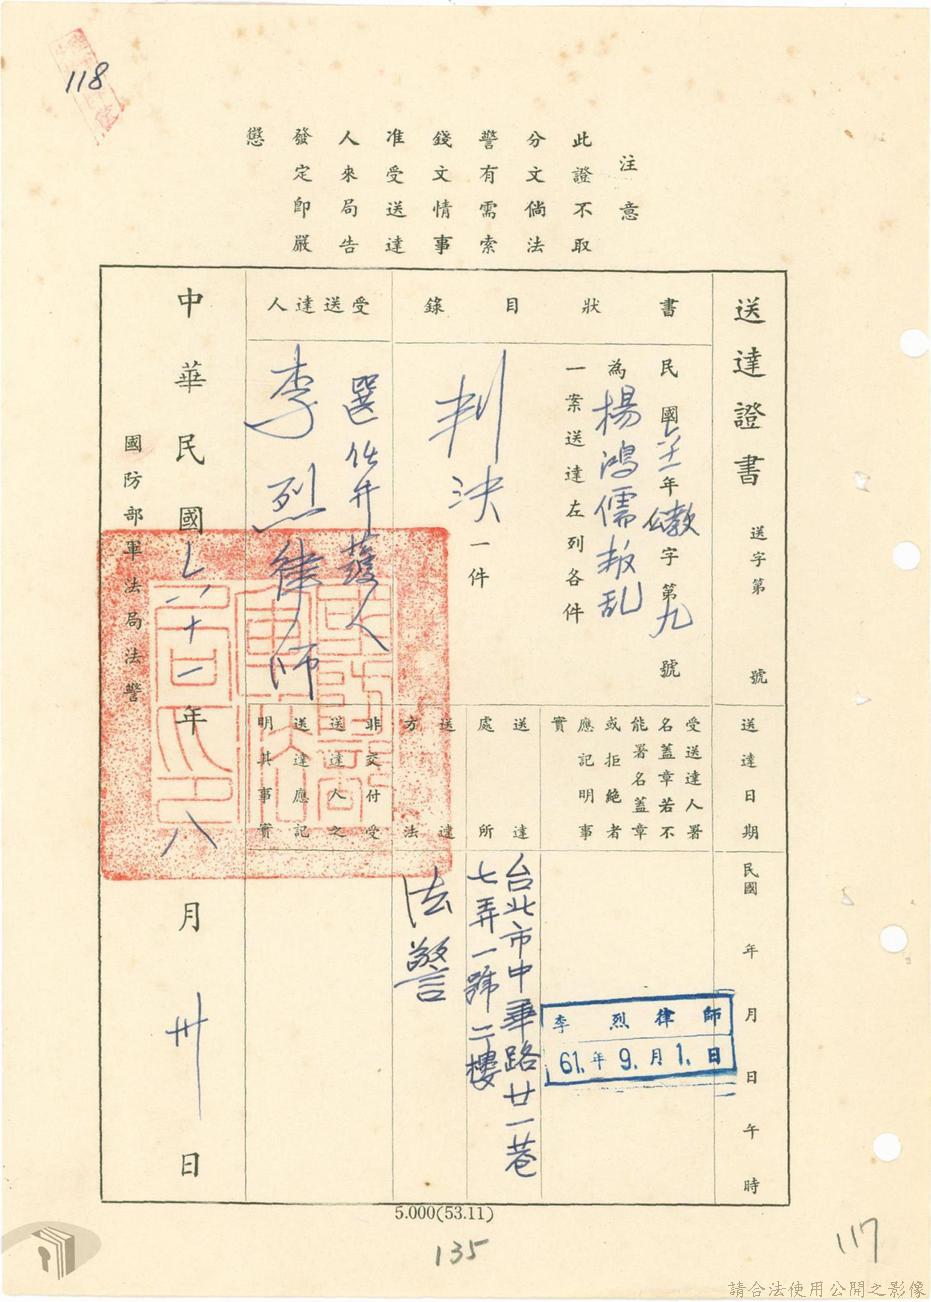 118
注意
此證不取
分文倘法
警有需索
錢文情事
准受送達
人來局告
發定即嚴
懲
送達證書
送字第 號
書狀目錄
民國六十一年 字第九號
為楊鴻儒叛乱
一案送達左列各件
判決一件
受送達人
選任弁護人
李烈律師
送達日期
民國 年 月 日 午 時
受送達人署
名蓋章若不
能署名蓋章
或拒絕者
應記明事
實
李烈律師
61.年9.月1.日
送達
處所
台北市中華路廿一巷
七弄一號二樓
送達
方法
法警
非交付受
送達人之
送達應記
明其事實
中華民國六十一年八月卅日
國防部軍法局法警
5.000(53.11)
135
117
請合法使用公開之影像